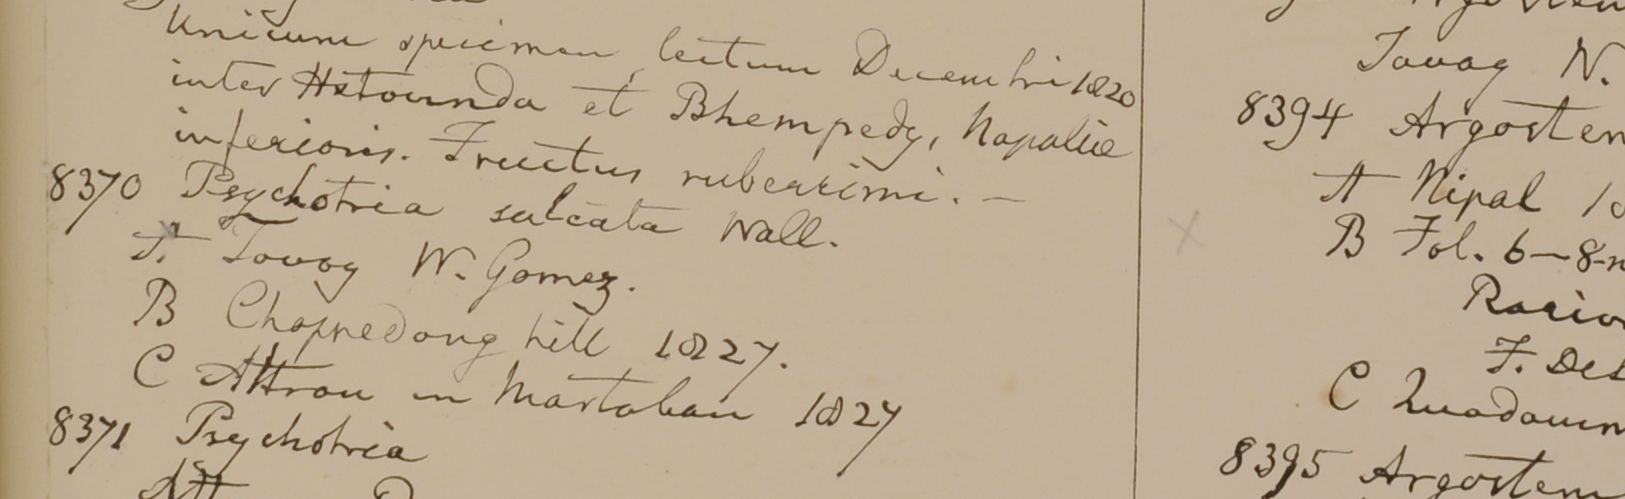 Unicum specimen, lectum Decembri 1820
inter Hetounda et Bhempedy, Napaliæ
inferioris. Fructus ruberrimi. —
8370 Psychotria sulcata Wall.
A. Tavoy W. Gomez.
B Chappedong hill 1827.
C Attran in Martaban 1827
8371 Psychotria
Tavoy N.
8394 Argostem
A Nipal
B Fol. 6-8-
C
8395 Argostem